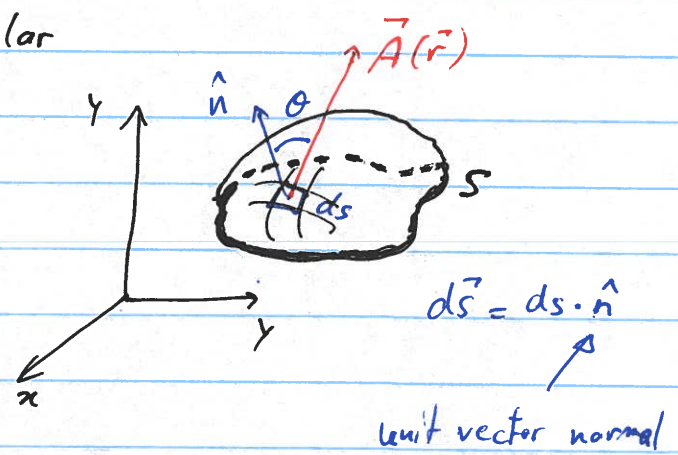 lar
A⃗(r⃗)
n̂
θ
Y
S
ds
ds⃗ = ds · n̂
Y
x
unit vector normal